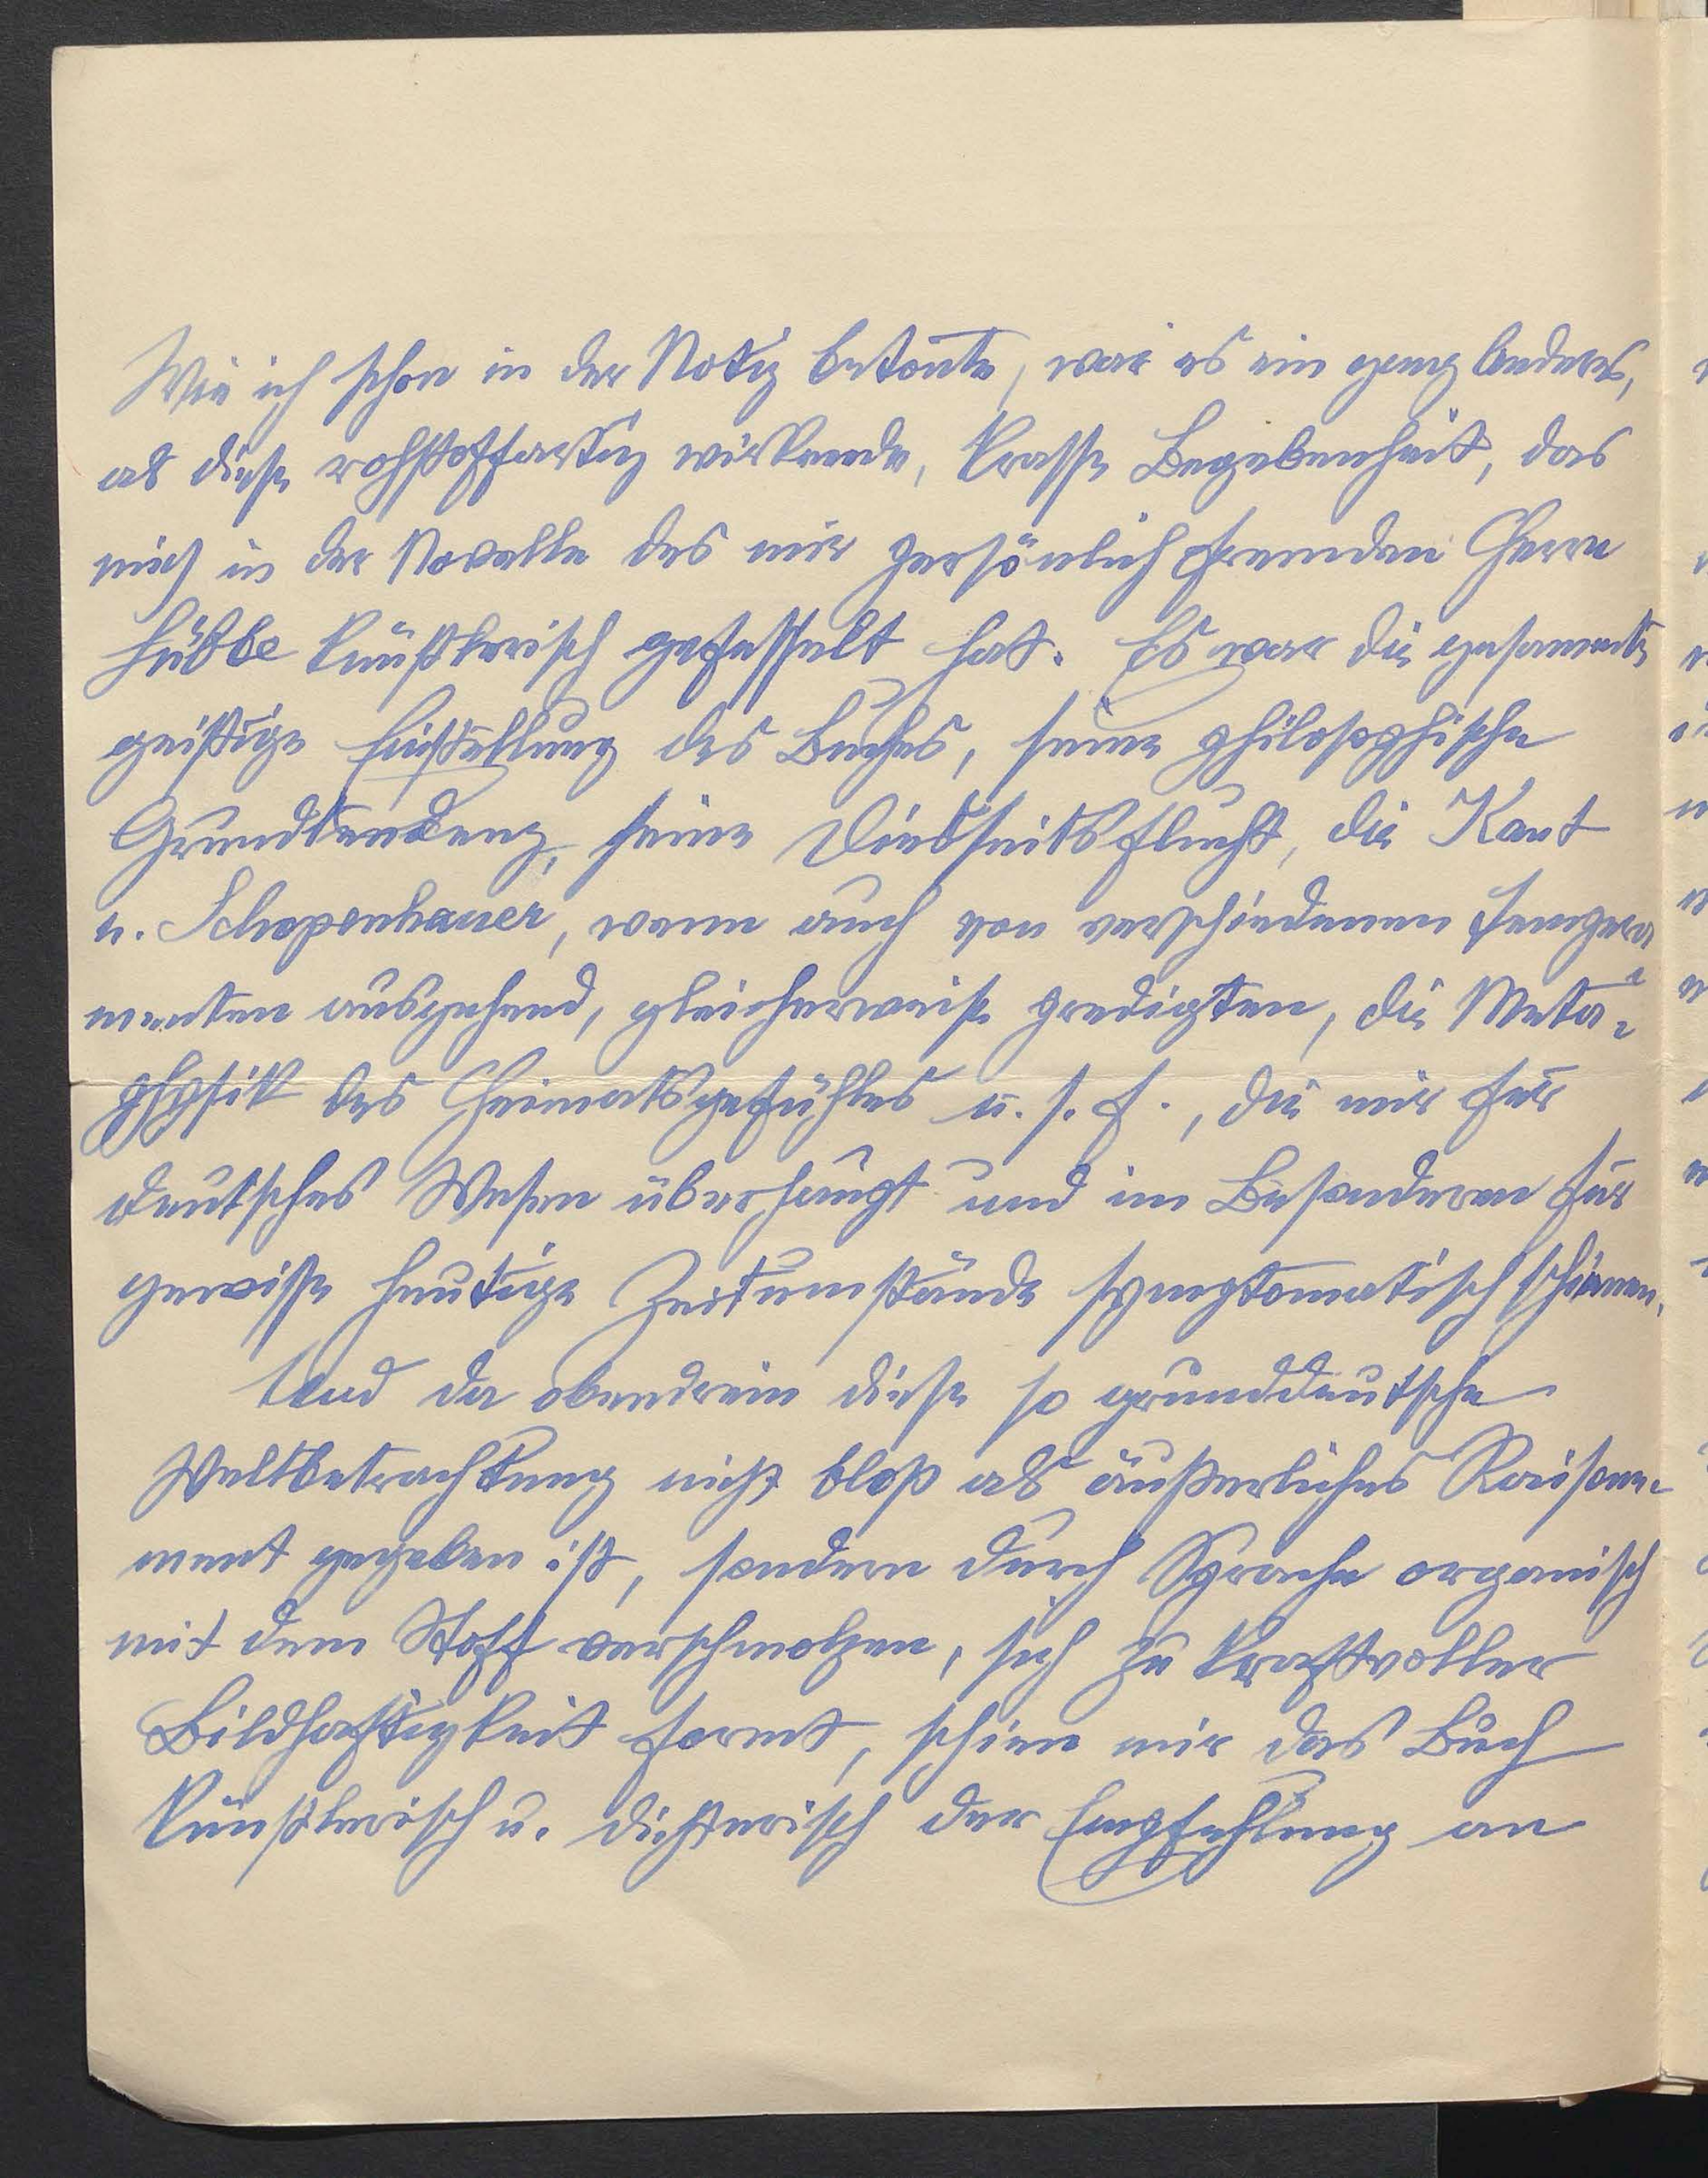 Wie ich schon in der Notiz betonte, war es ein ganz Anderes,
als diese rohstoffartig wirkende, krasse Begebenheit, das
mich in der Novelle des mir persönlich fremden Herrn
Hübbe künstlerisch gefesselt hat. Es war die gesamte
geistige Einstellung des Buches, seine philosophische
Grundtendenz, seine Diesseitsflucht, die Kant
u. Schopenhauer, wenn auch von verschiedenen Tempera-
menten ausgehend, gleicherweise predigten, die Meta-
physik des Heimatsgefühles u. s. f., die mir für
deutsches Wesen überhaupt und im Besonderen für
gewisse heutige Zeitumstände symptomatisch schienen.
Und da obendrein diese so grunddeutsche
Weltbetrachtung nicht bloß als äußerliches Raisonne-
ment gegeben ist, sondern durch Sprache organisch
mit dem Stoff verschmolzen, sich zu kraftvoller
Bildhaftigkeit formt, schien mir das Buch
künstlerisch u. dichterisch der Empfehlung an